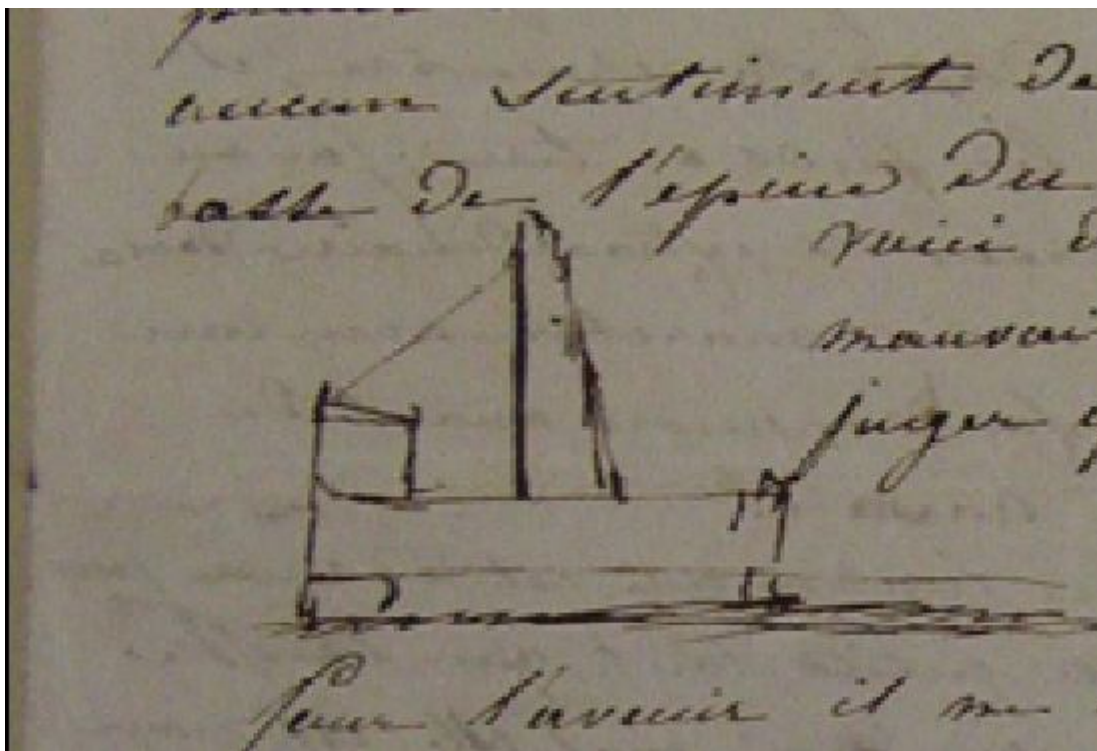 aucun sentiment de
basse de l'épine du
voici d
mauvai
juger q
Pour l'avenir il me